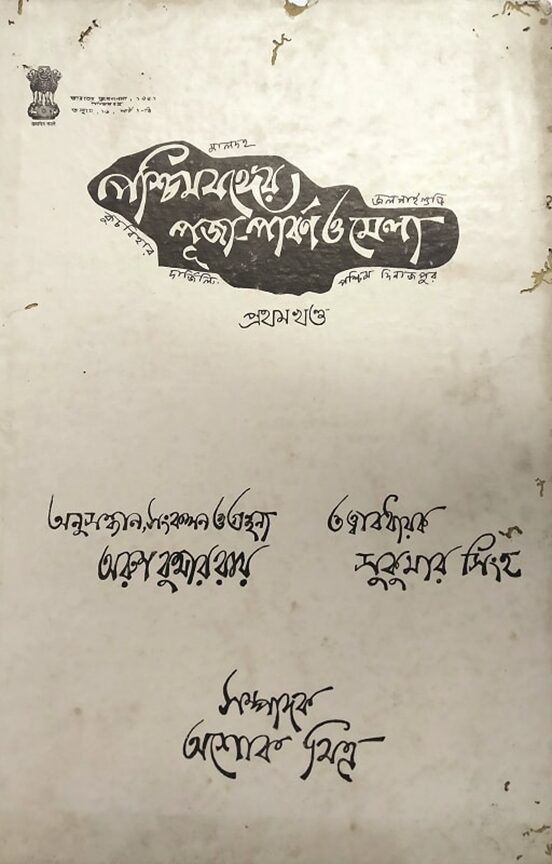 ভারতের জনগণনা, ১৯৬১
পশ্চিমবঙ্গ
মালদহ
পশ্চিমবঙ্গের
জলপাইগুড়ি
পূজা-পার্বণ ও মেলা
কুচবিহার
দার্জিলিং
পশ্চিম দিনাজপুর
প্রথম খণ্ড
অনুসন্ধান, সংকলন ও গ্রন্থনা
তত্ত্বাবধায়ক
অরুণ কুমার রায়
সুকুমার সিংহ
সম্পাদক
অশোক মিত্র